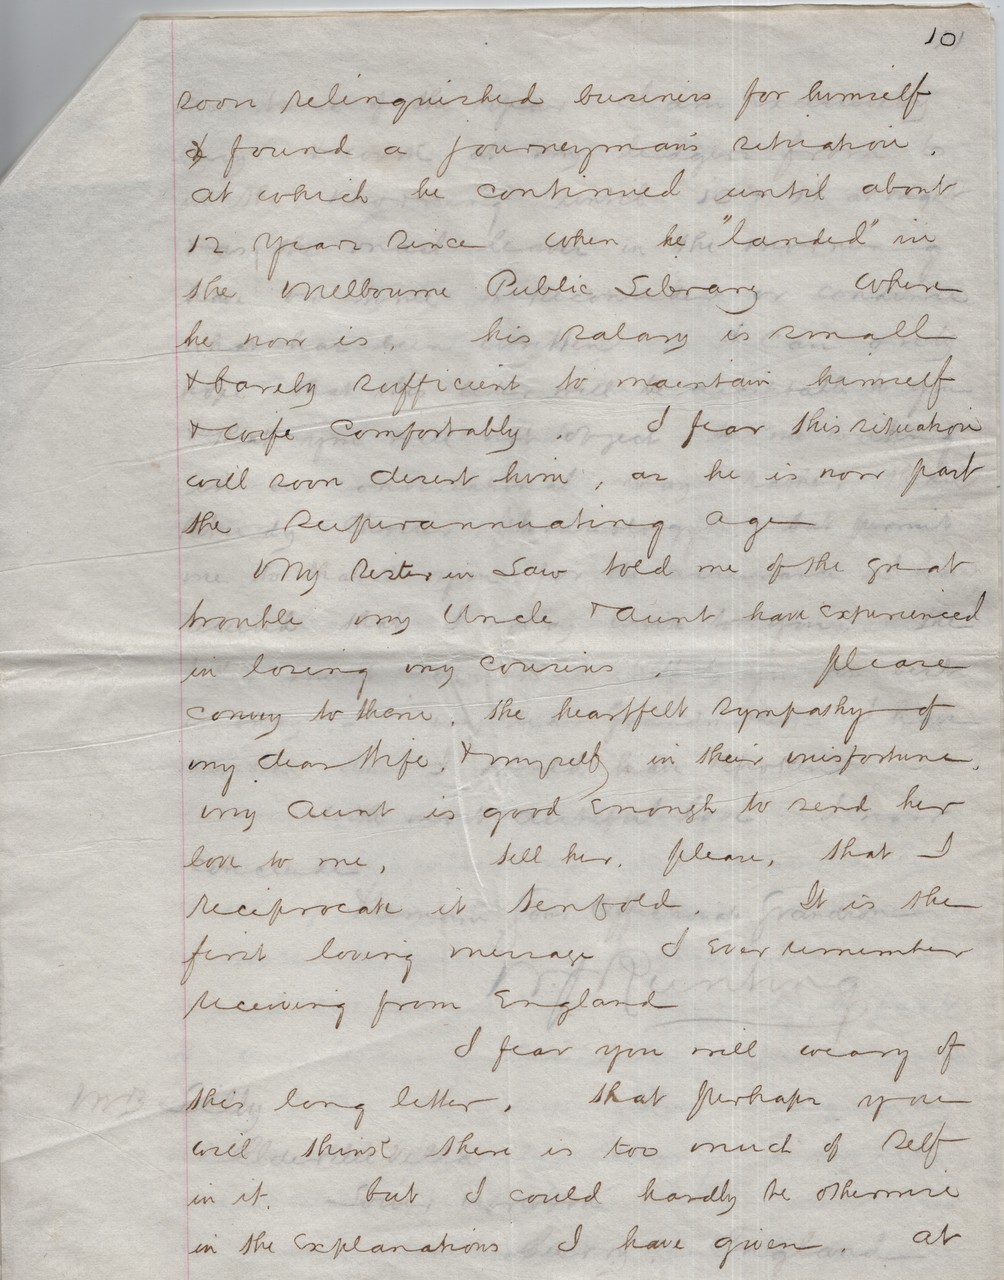 10
soon relinquished business for himself
& found a journeyman's situation.
at which he continued until about
12 years since when he "landed" in
the Melbourne Public Library where
he now is. his salary is small
& barely sufficient to maintain himself
& wife comfortably. I fear this situation
will soon desert him, as he is now past
the superannuating age
My sister in Law told me of the great
trouble my Uncle & Aunt have experienced
in losing my cousins. please
convey to them. the heartfelt sympathy of
my dear Wife. & myself in their misfortune.
my Aunt is good enough to send her
love to me, tell her. please, that I
reciprocate it tenfold. It is the
first loving message I ever remember
receiving from England
I fear you will weary of
this long letter. that perhaps you
will think there is too much of self
in it. but I could hardly be otherwise
in the explanations I have given. at